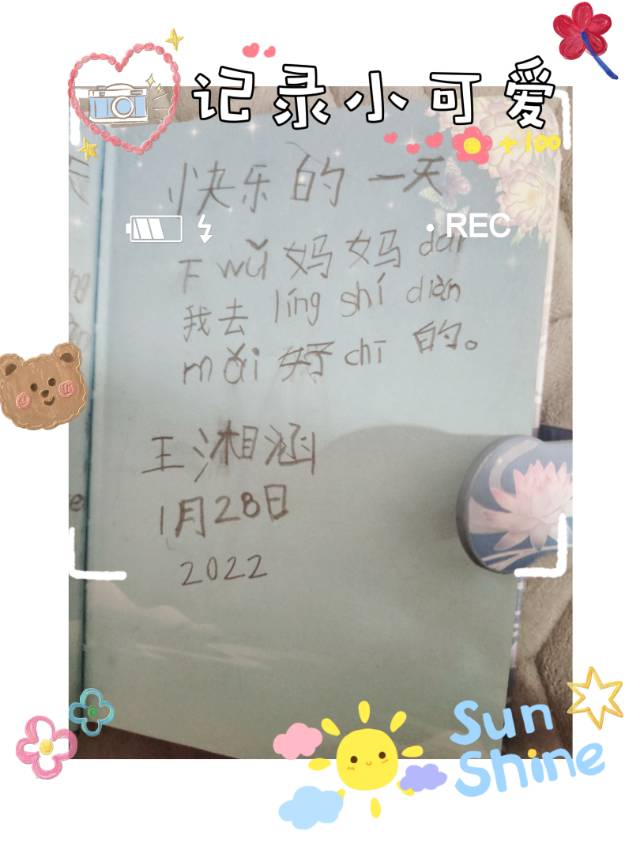 记录小可爱
+100
快乐的一天
REC
下wǔ妈妈dài
我去líng shí diàn
mǎi好chī的。
王湘涵
1月28日
2022
Sun
Shine